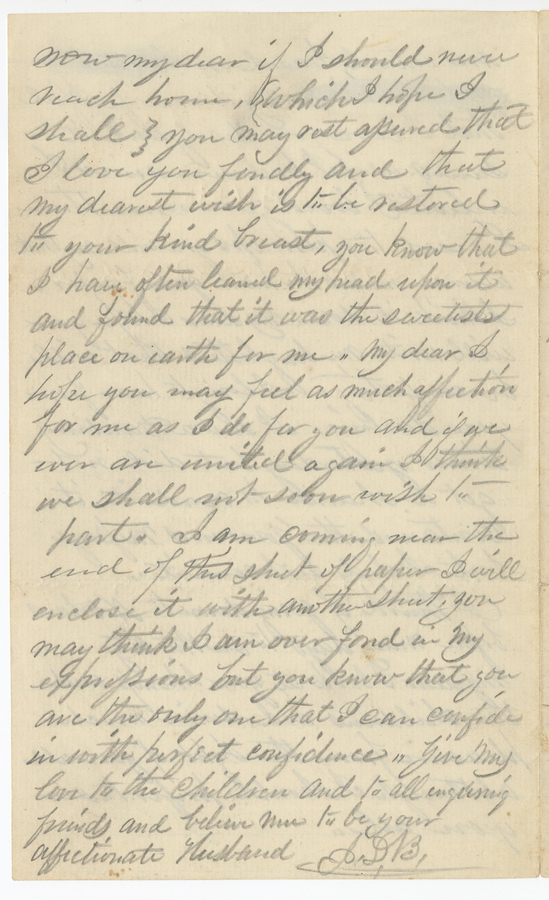 now my dear if I should never
reach home, (which I hope I
shall } you may rest assured that
I love you fondly and that
my dearest wish is to be restored
to your kind breast, you know that
I have often leaned my head upon it
and found that it was the sweetest
place on earth for me " my dear I
hope you may feel as much affection
for me as I do for you and if we
ever are united again I think
we shall not soon wish to
part " I am coming near the
end of this sheet of paper I will
enclose it with another sheet, you
may think I am over fond in my
expressions but you know that you
are the only one that I can confide
in with perfect confidence " Give my
love to the children and to all enquiring
friends and believe me to be your
affectionate Husband J. D. B.